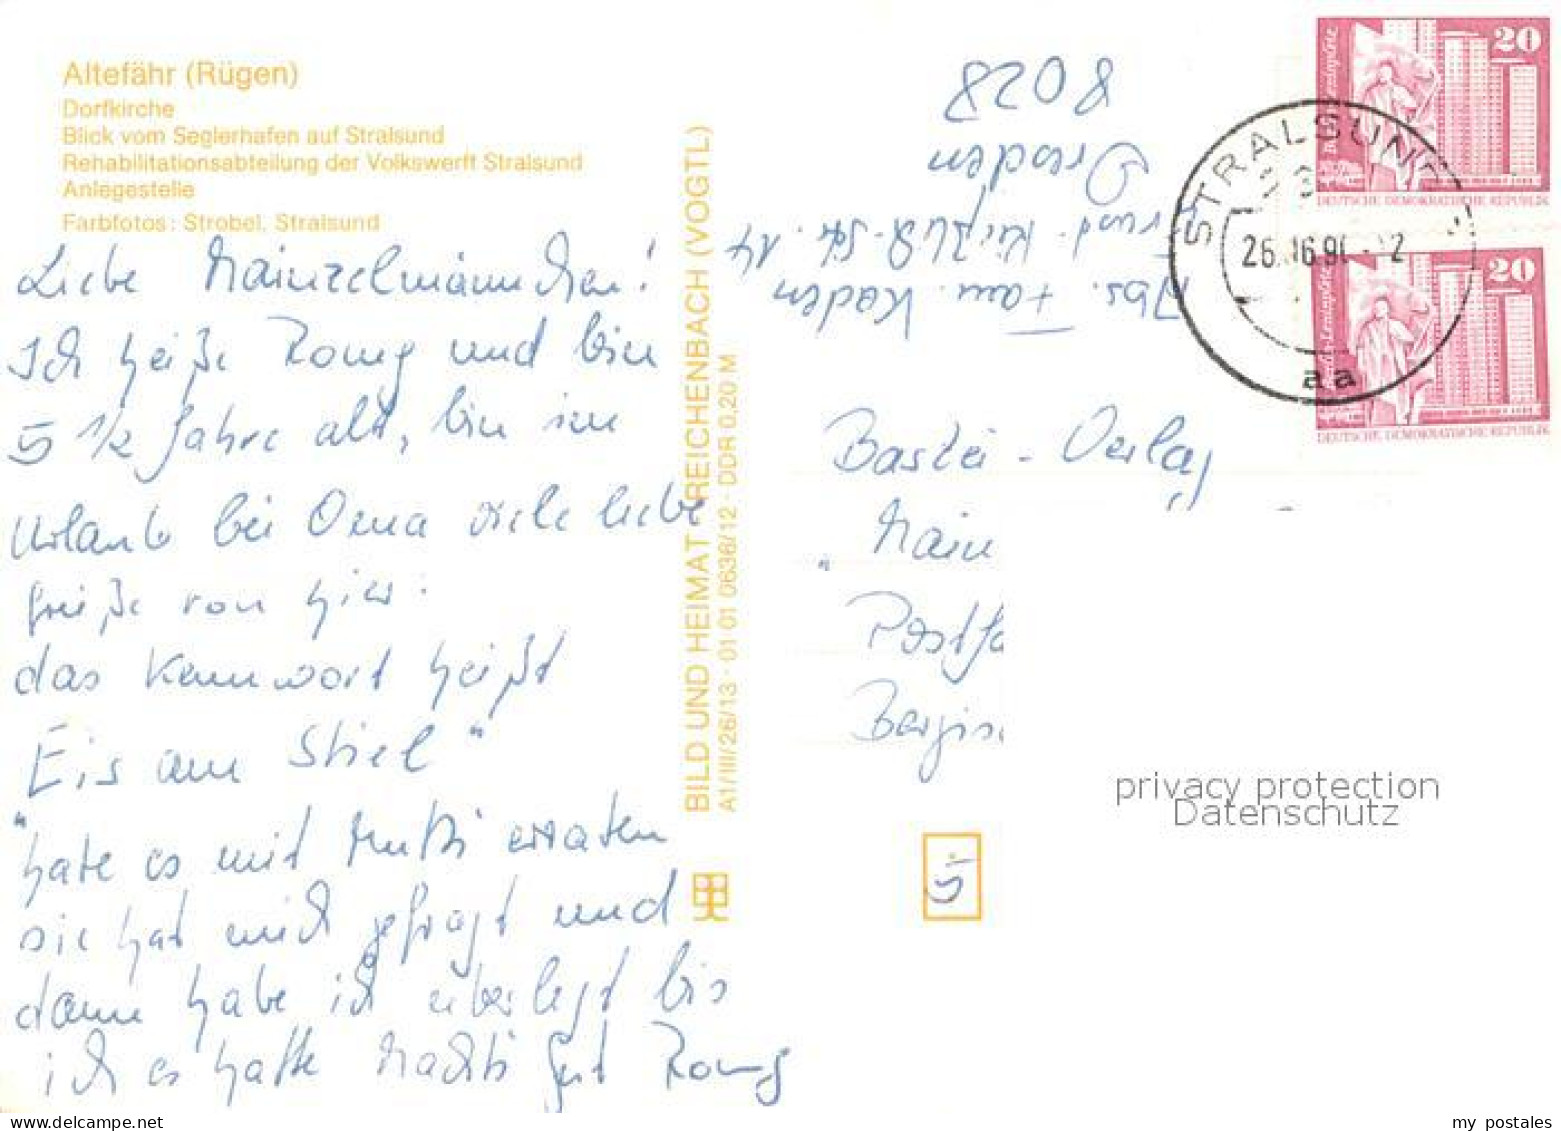 Altefähr (Rügen)
Dorfkirche
Blick vom Seglerhafen auf Stralsund
Rehabilitationsabteilung der Volkswerft Stralsund
Anlegestelle
Farbfotos: Strobel, Stralsund
Liebe Mainzelmännchen!
Ich heiße Romy und bin
5 1/2 Jahre alt, bin im
Urlaub bei Oma viele liebe
Grüße von hier.
das Kennwort heißt
Eis am Stiel"
"habe es mit Mutti erraten
sie hat mich gefragt und
dann habe ich überlegt bis
ich es hatte Machts gut Romy
BILD UND HEIMAT REICHENBACH (VOGTL)
A1/III/26/13 · 01 01 0636/12 · DDR 0,20 M
Abs. Fam. Kaden
14
Dresden
8028
20
DEUTSCHE DEMOKRATISCHE REPUBLIK
20
DEUTSCHE DEMOKRATISCHE REPUBLIK
STRALSUND
aa
Bastei-Verlag
"Main
Postfa
Bergis
5
privacy protection
Datenschutz
my postales